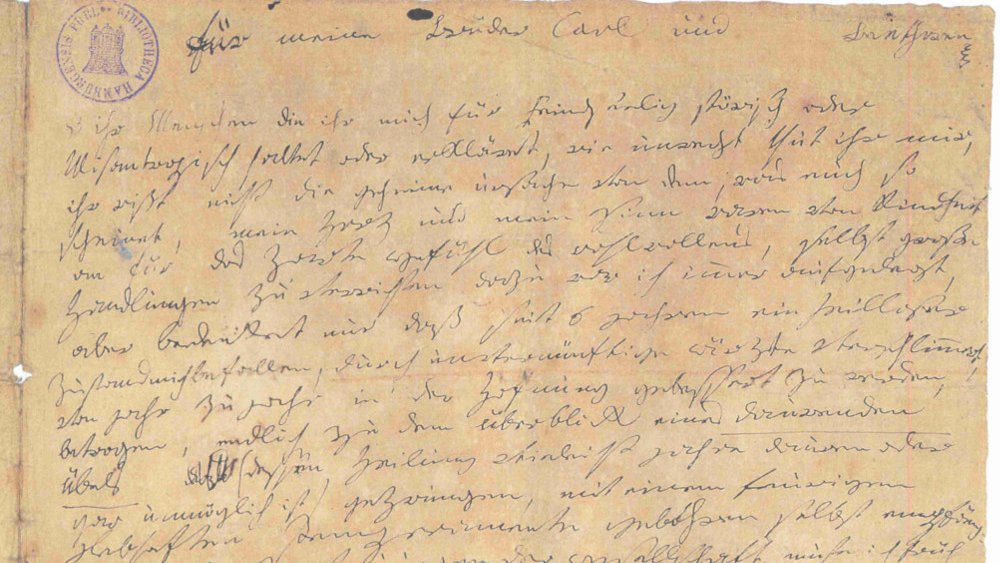 BIBLIOTHECA HAMBURGENSIS PUBL.
für meine Brüder Carl und Beethowen
o ihr Menschen die ihr mich für Feindseelig störisch oder
Misantropisch haltet oder erkläret, wie unrecht thut ihr mir,
ihr wißt nicht die geheime ursache von dem, was euch so
scheinet, mein Herz und mein Sinn waren von Kindheit
an für das Zarte Gefühl des wohlwollens, selbst große
Handlungen zu verrichten dazu war ich immer aufgelegt,
aber bedenket nur daß seit 6 jahren ein heilloser
Zustand mich befallen, durch unvernünftige ärzte verschlimmert,
von jahr zu jahr in der Hofnung gebessert zu werden,
betrogen, endlich zu dem überblick eines daurenden
Übels (dessen Heilung vieleicht jahre dauren oder
gar unmöglich ist) gezwungen, mit einem feurigen
Lebhaften Temperamente gebohren selbst empfäng
der Gesellschaft, muste ich früh